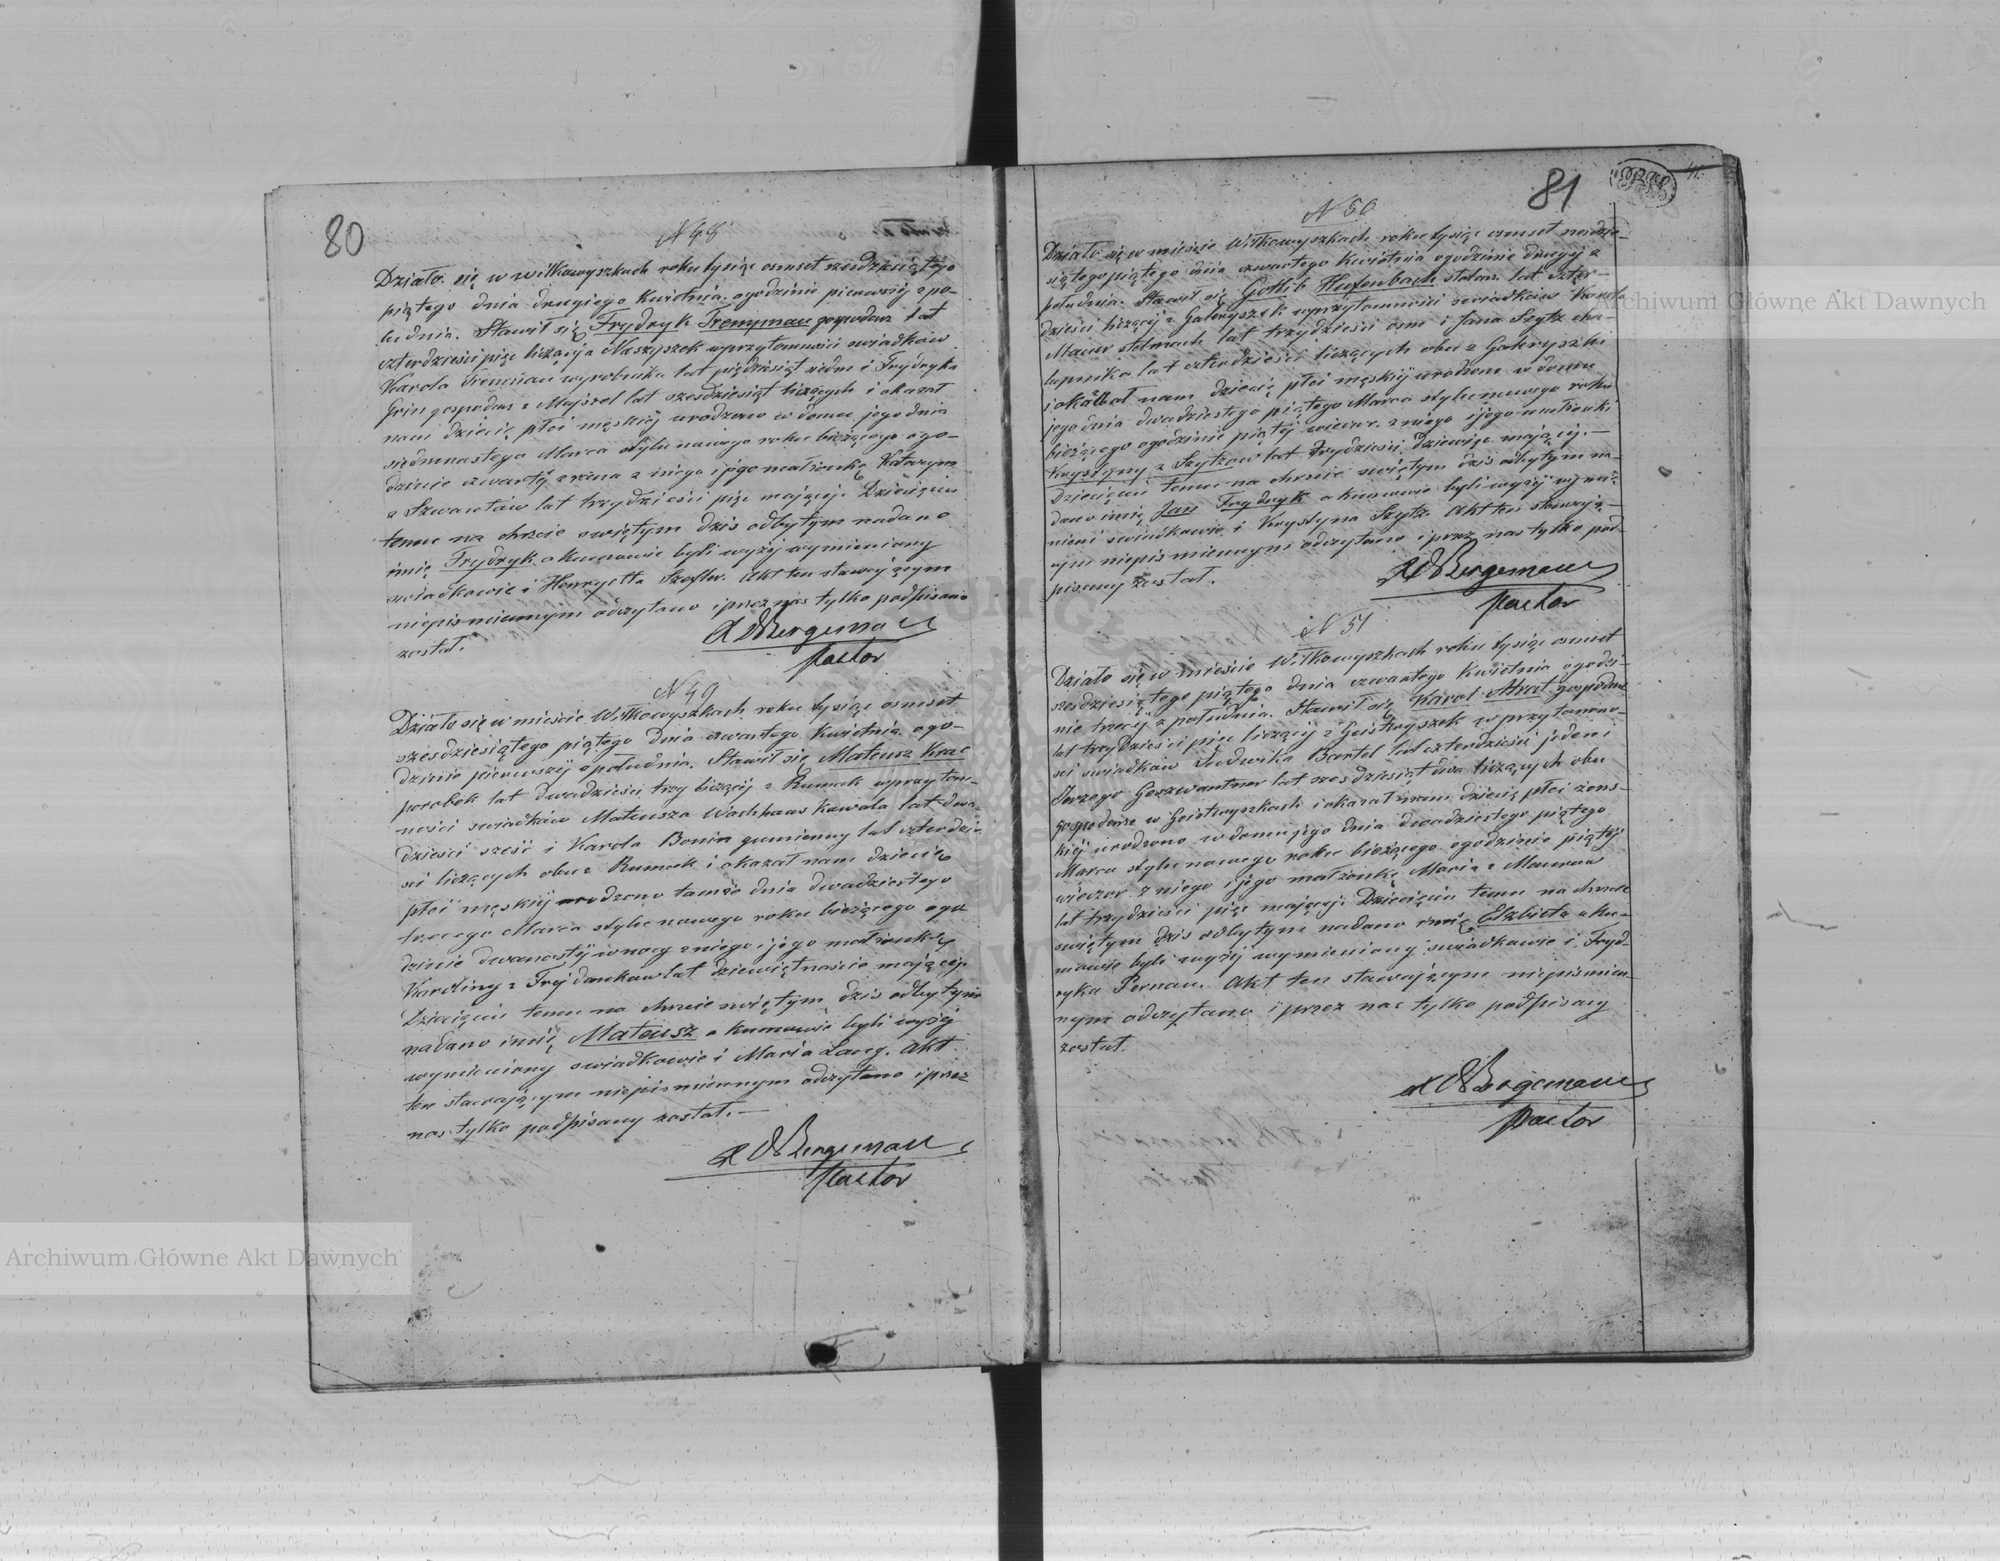 80
N 48
Działo się w Wiłkowyszkach roku tysiąc osmset szesdziesiątego
piątego dnia drugiego Kwietnia ogodzinie pierwszej z po-
ludnia. Stawił się Frydryk Trenyman gospodarz lat
czterdzieści pięc liczący z Naszyszek wprzytomności swiadków
Karola Trencman wyrobnika lat pięcdziesiąt siedm i Frydryka
Grin gospodarz z Majszel lat szesdziesiąt liczących i okazał
nam dziecię płci męskiej urodzone w domu jego dnia
siedmnastego Marca stylu nowego roku bieżącego ogo-
dzinie czwartej z rana z niego i jego małżonki Katarzyny
z Szwartów lat trzydzieści pięc mającej. Dziecięciu
temu na chrzcie swiętym dzis odbytym nadano
imię Frydryk a kumowie byli wyżej wymieniony
swiadkowie i Henryetta Szefler. Akt ten stawającym
niepismiennym odczytano i przez nas tylko podpisano
został.
Bergemann
Pastor
N 49
Działo się w mieście Wiłkowyszkach roku tysiąc osmset
szesdziesiątego piątego dnia czwartego Kwietnia ogo-
dzinie pierwszej z południa. Stawił się Mateusz Krac
parobek lat dwadzieścia trzy liczący z Rumok wprzytom-
ności swiadków Mateusza Wachhaus kowala lat dwa-
dziesci sześć i Karola Bonin gumienny lat czterdzie-
sci liczących obu z Rumok i okazał nam dziecię
płci męskiej urodzono tamże dnia dwadziestego
trzeciego Marca stylu nowego roku bieżącego ogo
dzinie dwanastej w nocy z niego i jego małżonki
Karoliny z Frejdankow lat dziewiętnaście mającej.
Dziecięciu temu na chrzcie swiętym dzis odbytym
nadano imię Mateusz a kumowie byli wyżej
wymieniony swiadkowie i Maria Lang. Akt
ten stawającym niepismiennym odczytano i przez
nas tylko podpisany został.—
Bergemann
Pastor
81
N 50
Działo się w mieście Wiłkowyszkach roku tysiąc osmset szesdzie-
siątego piątego dnia czwartego Kwietnia ogodzinie drugiej z
południa. Stawił się Gotlib Hufenbach stolarz lat czter-
dzieści liczący z Gateryszek wprzytomności swiadków Karola
Maier stelmach lat trzydzieści osm i Jana Szytz cha-
łupnika lat czterdzieści liczących obu z Gateryszki
i okazał nam dziecię płci męskiej urodzone w domu
jego dnia dwadziestego piątego Marca stylu nowego roku
bieżącego ogodzinie piątej wieczor z niego i jego małżonki
Krystyny z Szytzow lat trzydzieści dziewięc mającej.—
Dziecięciu temu na chrzcie swiętym dzis odbytym na-
dano imię Jan Frydryk a kumowie byli wyżej wymie-
nieni swiadkowie i Krystyna Szytz. Akt ten stawają-
cym niepismiennym odczytano i przez nas tylko pod-
pisany został.
Bergemann
Pastor
N 51
Działo się w mieście Wiłkowyszkach roku tysiąc osmset
szesdziesiątego piątego dnia czwartego Kwietnia ogodzi-
nie trzeciej z południa. Stawił się Karol Abrat gospodarz
lat trzydzieści pięc liczący z Geistryszek wprzytomno-
sci swiadków Ludwika Bartel lat czterdzieści jeden i
Jerzego Geszwantner lat szesdziesiąt dwa liczących obu
gospodarze w Geistryszkach i okazał nam dziecię płci żens-
kiej urodzono w domu jego dnia dwadziestego piątego
Marca stylu nowego roku bieżącego ogodzinie piątej
wieczor z niego i jego małżonki Maria z
lat trzydzieści pięc mającej. Dziecięciu temu na chrzcie
swiętym dzis odbytym nadano imię Elzbieta a ku-
mowie byli wyżej wymieniony swiadkowie i Fryd-
ryka Pernau. Akt ten stawającym niepismien-
nym odczytano i przez nas tylko podpisany
został.
Bergemann
Pastor
Archiwum Główne Akt Dawnych
Archiwum Główne Akt Dawnych